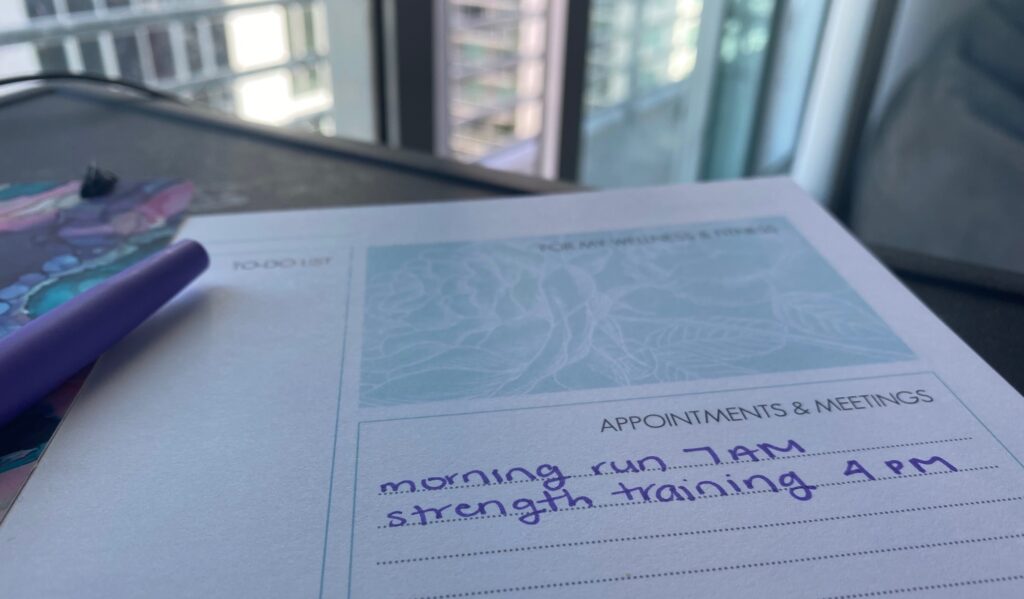 FOR MY WELLNESS & FITNESS
TO-DO LIST
APPOINTMENTS & MEETINGS
morning run 7AM
strength training 4 PM